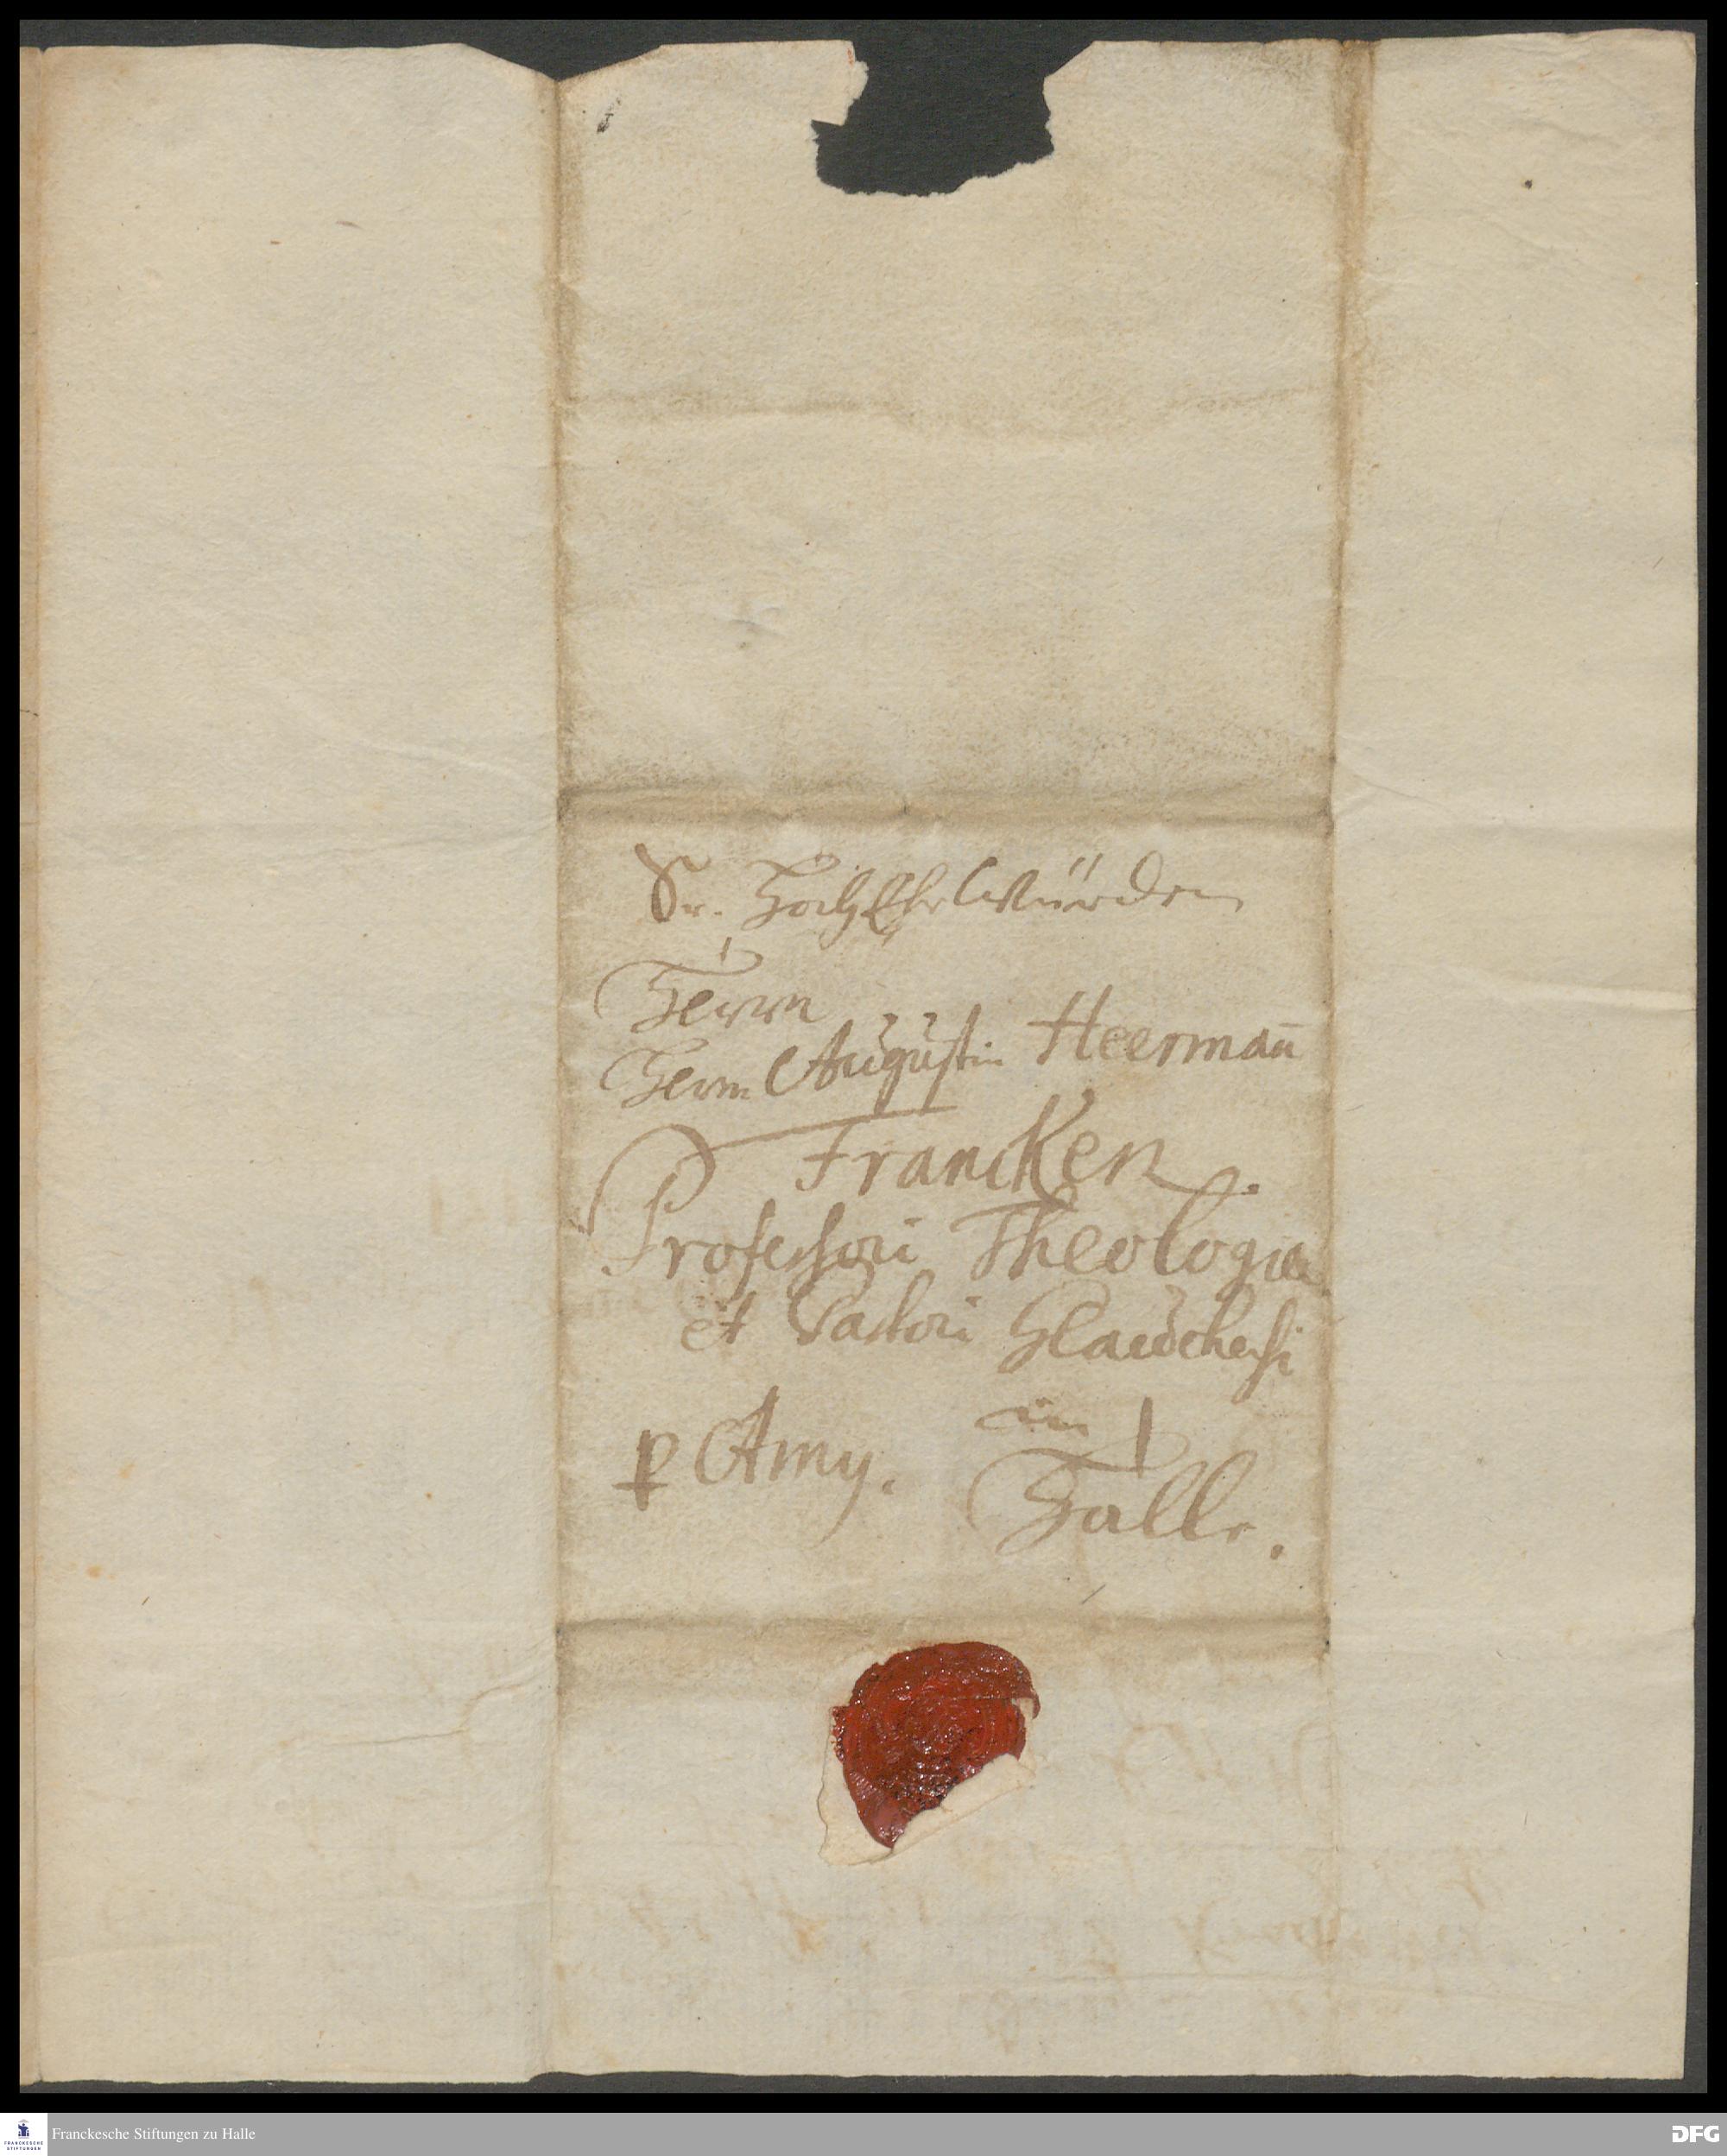 Sr. HochEhrWürden
Herrn
Herrn Augustin Heerman̄
Francken.
Professori Theologiæ
et Pastori Glauchensi
in
p Amy.
Halle.
Franckesche Stiftungen zu Halle
FRANCKESCHE
STIFTUNGEN
DFG